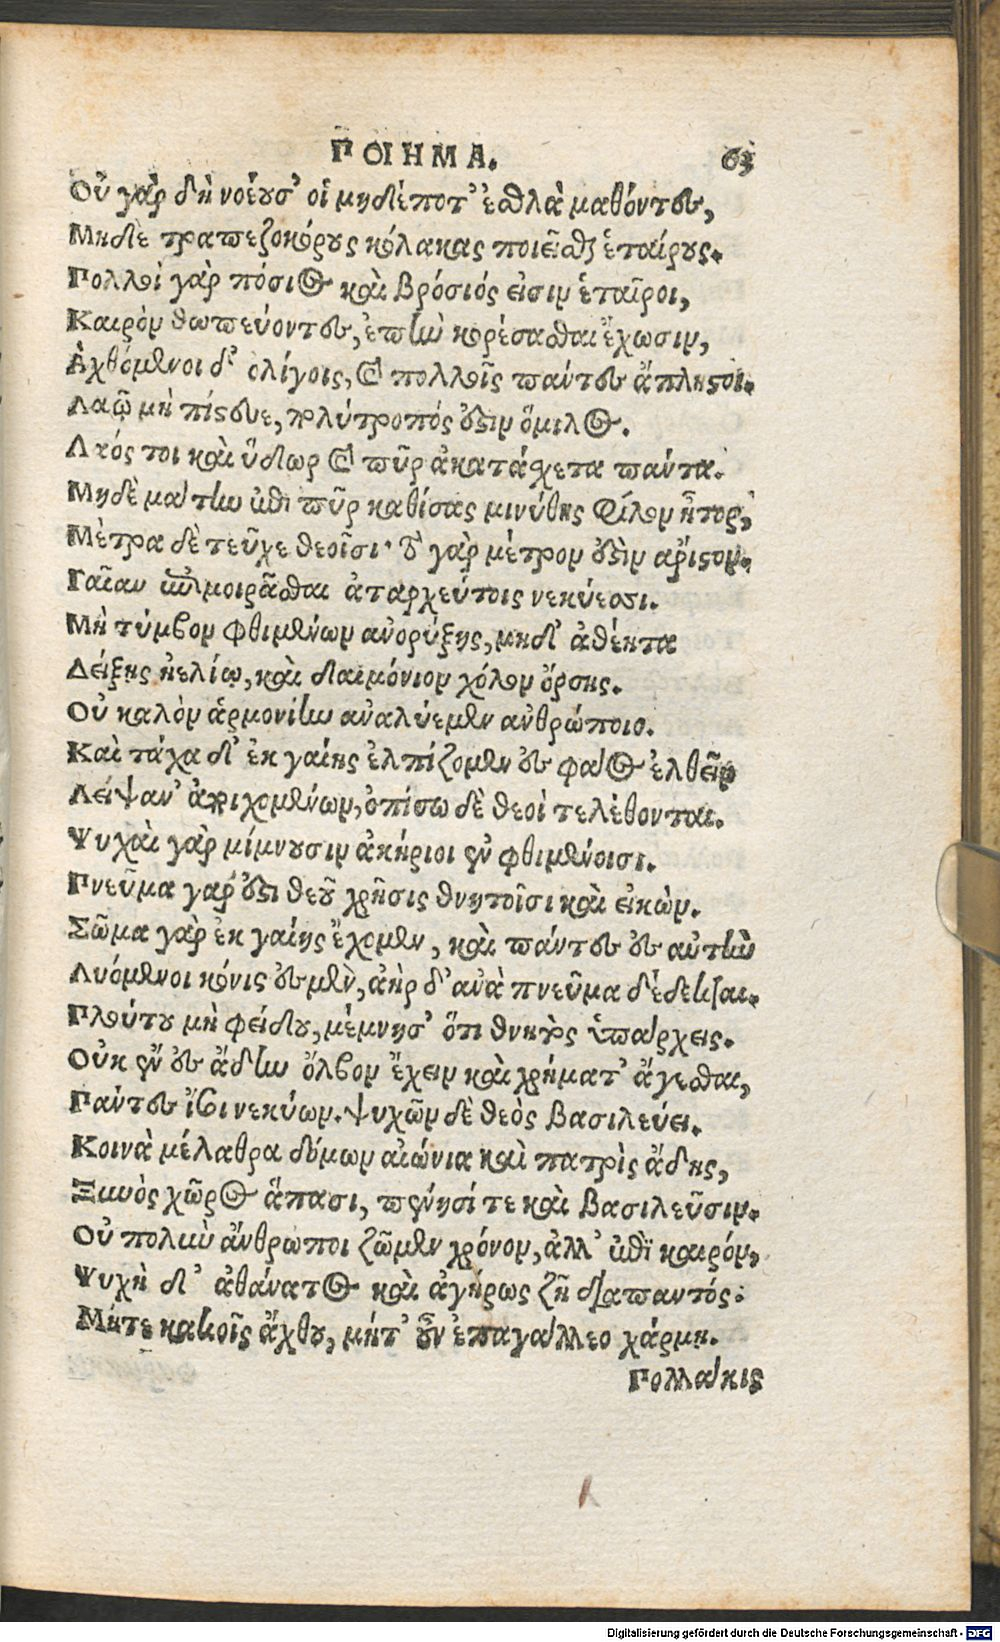 ΠΟΙΗΜΑ. 63
Οὐ γὰρ δὴ νοέουσ' οἱ μηδέποτ' ἐσθλὰ μαθόντες,
Μηδὲ τραπεζοκόρους κόλακας ποιεῖσθαι ἑταίρους.
Πολλοὶ γὰρ πόσιος καὶ βρόσιός εἰσιν ἑταῖροι,
Καιρὸν θωπεύοντες, ἐπὴν κορέσασθαι ἔχωσιν,
Ἀχθόμενοι δ' ὀλίγοις, καὶ πολλοῖς πάντες ἄπληστοι.
Λαῷ μὴ πίστευε, πολύτροπός ἐστιν ὅμιλος.
Λαός τοι καὶ ὕδωρ καὶ πῦρ ἀκατάσχετα πάντα.
Μηδὲ μάτην ἐπὶ πῦρ καθίσας μινύθῃς φίλον ἦτορ,
Μέτρα δὲ τεῦχε θεοῖσι· τὸ γὰρ μέτρον ἐστὶν ἄριστον.
Γαῖαν ἐπιμοιρᾶσθαι ἀταρχεύτοις νεκύεσσι.
Μὴ τύμβον φθιμένων ἀνορύξῃς, μηδ' ἀθέητα
Δείξῃς ἠελίῳ, καὶ δαιμόνιον χόλον ὄρσῃς.
Οὐ καλὸν ἁρμονίην ἀναλύεμεν ἀνθρώποιο.
Καὶ τάχα δ' ἐκ γαίης ἐλπίζομεν ἐς φάος ἐλθεῖν
Λείψαν' ἀποιχομένων, ὀπίσω δὲ θεοὶ τελέθονται.
Ψυχαὶ γὰρ μίμνουσιν ἀκήριοι ἐν φθιμένοισι.
Πνεῦμα γάρ ἐστι θεοῦ χρῆσις θνητοῖσι καὶ εἰκών.
Σῶμα γὰρ ἐκ γαίης ἔχομεν, καὶ πάντες ἐς αὐτὴν
Λυόμενοι κόνις ἐσμέν, ἀὴρ δ' ἀνὰ πνεῦμα δέδεκται.
Πλούτου μὴ φείδου, μέμνησ' ὅτι θνητὸς ὑπάρχεις.
Οὐκ ἔν' ἐς ᾅδην ὄλβον ἔχειν καὶ χρήματ' ἄγεσθαι,
Πάντες ἴσοι νεκύων. ψυχῶν δὲ θεὸς βασιλεύει.
Κοινὰ μέλαθρα δόμων αἰώνια καὶ πατρὶς ᾅδης,
Ξυνὸς χῶρος ἅπασι, πένησί τε καὶ βασιλεῦσιν.
Οὐ πολὺν ἄνθρωποι ζῶμεν χρόνον, ἀλλ' ἐπὶ καιρόν,
Ψυχὴ δ' ἀθάνατος καὶ ἀγήρως ζῇ διαπαντός.
Μήτε κακοῖς ἄχθου, μήτ' οὖν ἐπαγάλλεο χάρμῃ.
Πολλάκις
Digitalisierung gefördert durch die Deutsche Forschungsgemeinschaft - DFG